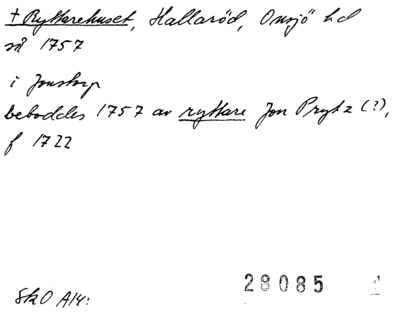 + Ryttarehuset, Hallaröd, Onsjö hd
nä 1757
i Jonstorp
beboddes 1757 av ryttare Jon Prytz (?),
f 1722
28085 1
SkO A14: